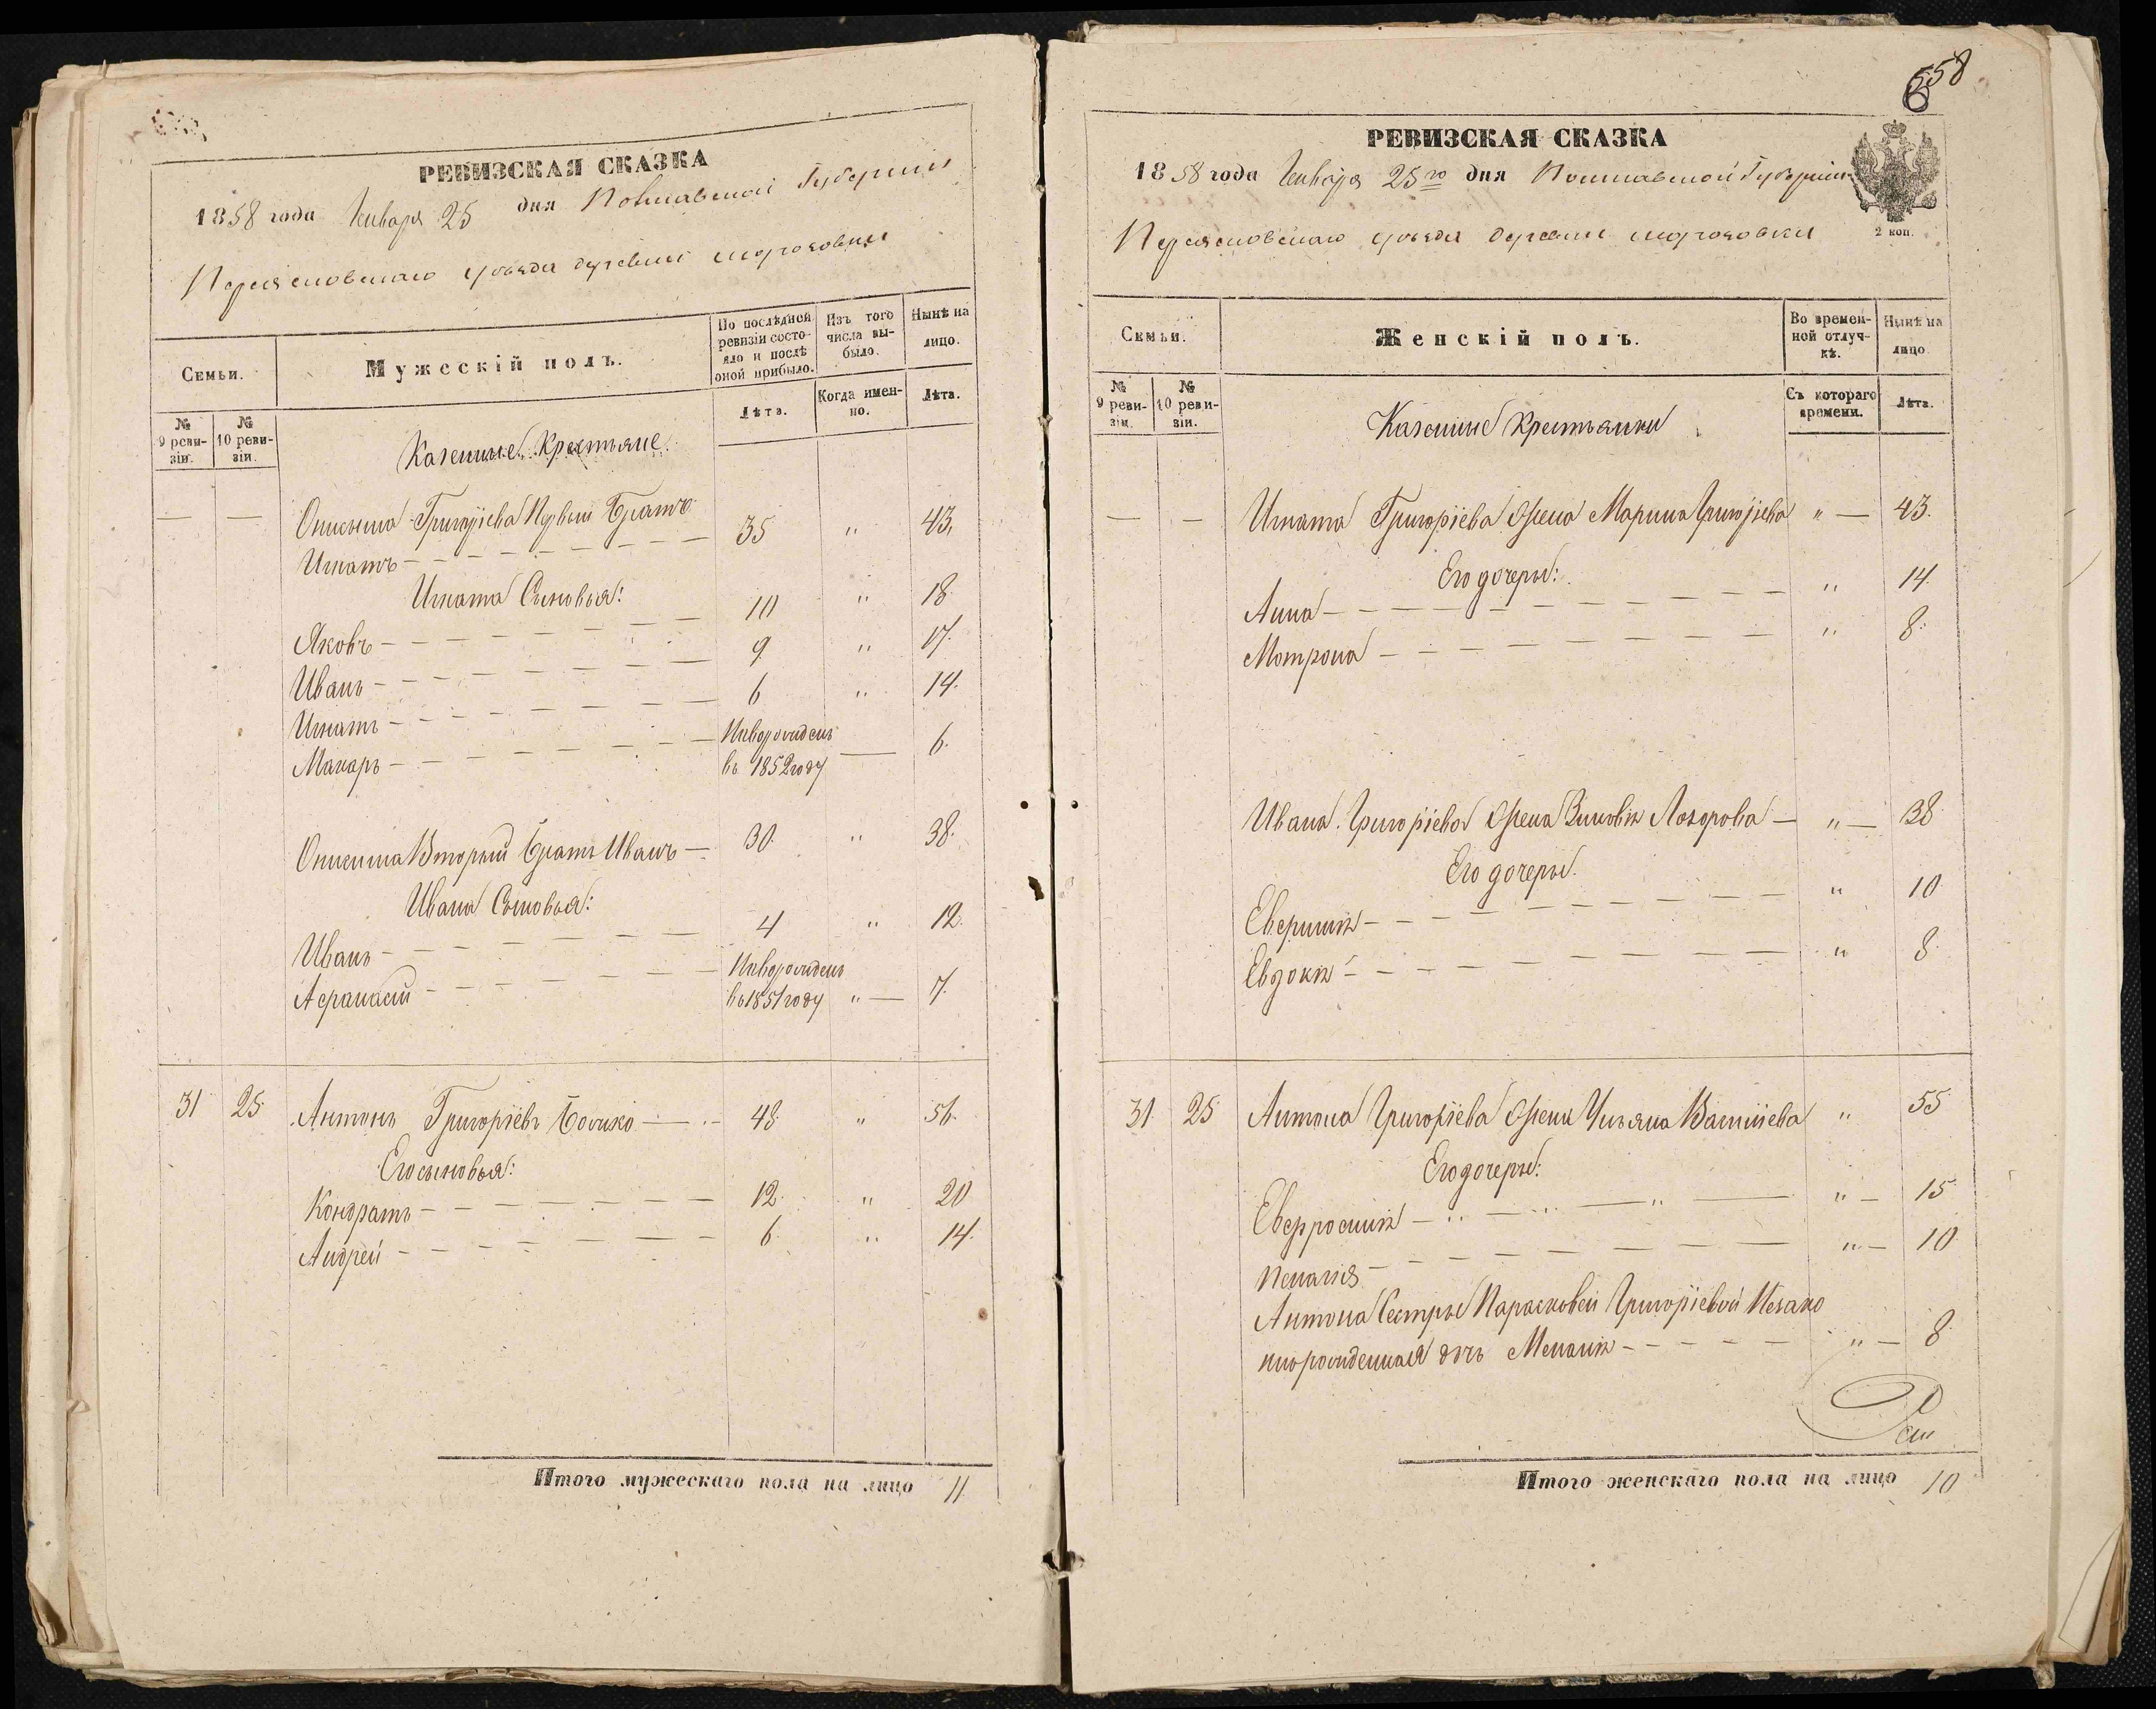 РЕВИЗСКАЯ СКАЗКА
1858 года Января 25 дня Полтавской Губернии
Переясловскаго уезда деревни
Семьи.
Мужескій полъ.
По послѣдней ревизіи состояло и послѣ оной прибыло.
Изъ того числа выбыло.
Нынѣ на лицо.
№ 9 ревизіи.
№ 10 ревизіи.
Лѣта.
Когда именно.
Лѣта.
Казенные Крестьяне.
— — Онисима Григоріева Первый Братъ
Игнатъ 35 " 43.
Игната Сыновья:
Яковъ 10 " 18.
Иванъ 9 " 17.
Игнатъ 6 " 14.
Макаръ Новорожденъ въ 1852 году — 6.
Онисима Вторый Братъ Иванъ 30. " 38.
Ивана Сыновья:
Иванъ 4 " 12.
Афанасій Новорожденъ въ 1851 году " 7.
31 25 Антонъ Григоріевъ Божко 48 " 56.
Его сыновья:
Кондратъ 12 " 20
Андрей 6 " 14.
Итого мужескаго пола на лицо 11
558
РЕВИЗСКАЯ СКАЗКА
1858 года Января 25го дня Полтавской Губерніи
2 коп.
Переясловскаго уезда деревни
Семьи.
Женскій полъ.
Во временной отлучкѣ.
Нынѣ на лицо.
№ 9 ревизіи.
№ 10 ревизіи.
Съ котораго времени.
Лѣта.
Казенные Крестьянки
— — Игната Григоріева Жена Марина Григоріева " — 43.
Его дочеры:
Анна " 14
Мотрона " 8.
Ивана Григоріева Жена Зиновія Лазорова " — 38
Его дочеры.
" 10
Евдокія " 8
31 25 Антона Григоріева Жена Ульяна Василіева " 55
Его дочеры:
Евфросинія " — 15
Пелагія " — 10
Антона Сестры Парасковеи Григоріевой Незако
ннорожденная дочь Меланія " — 8
Итого женскаго пола на лицо 10